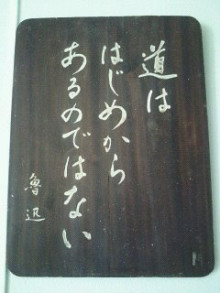 道は
はじめから
あるのではない
魯迅